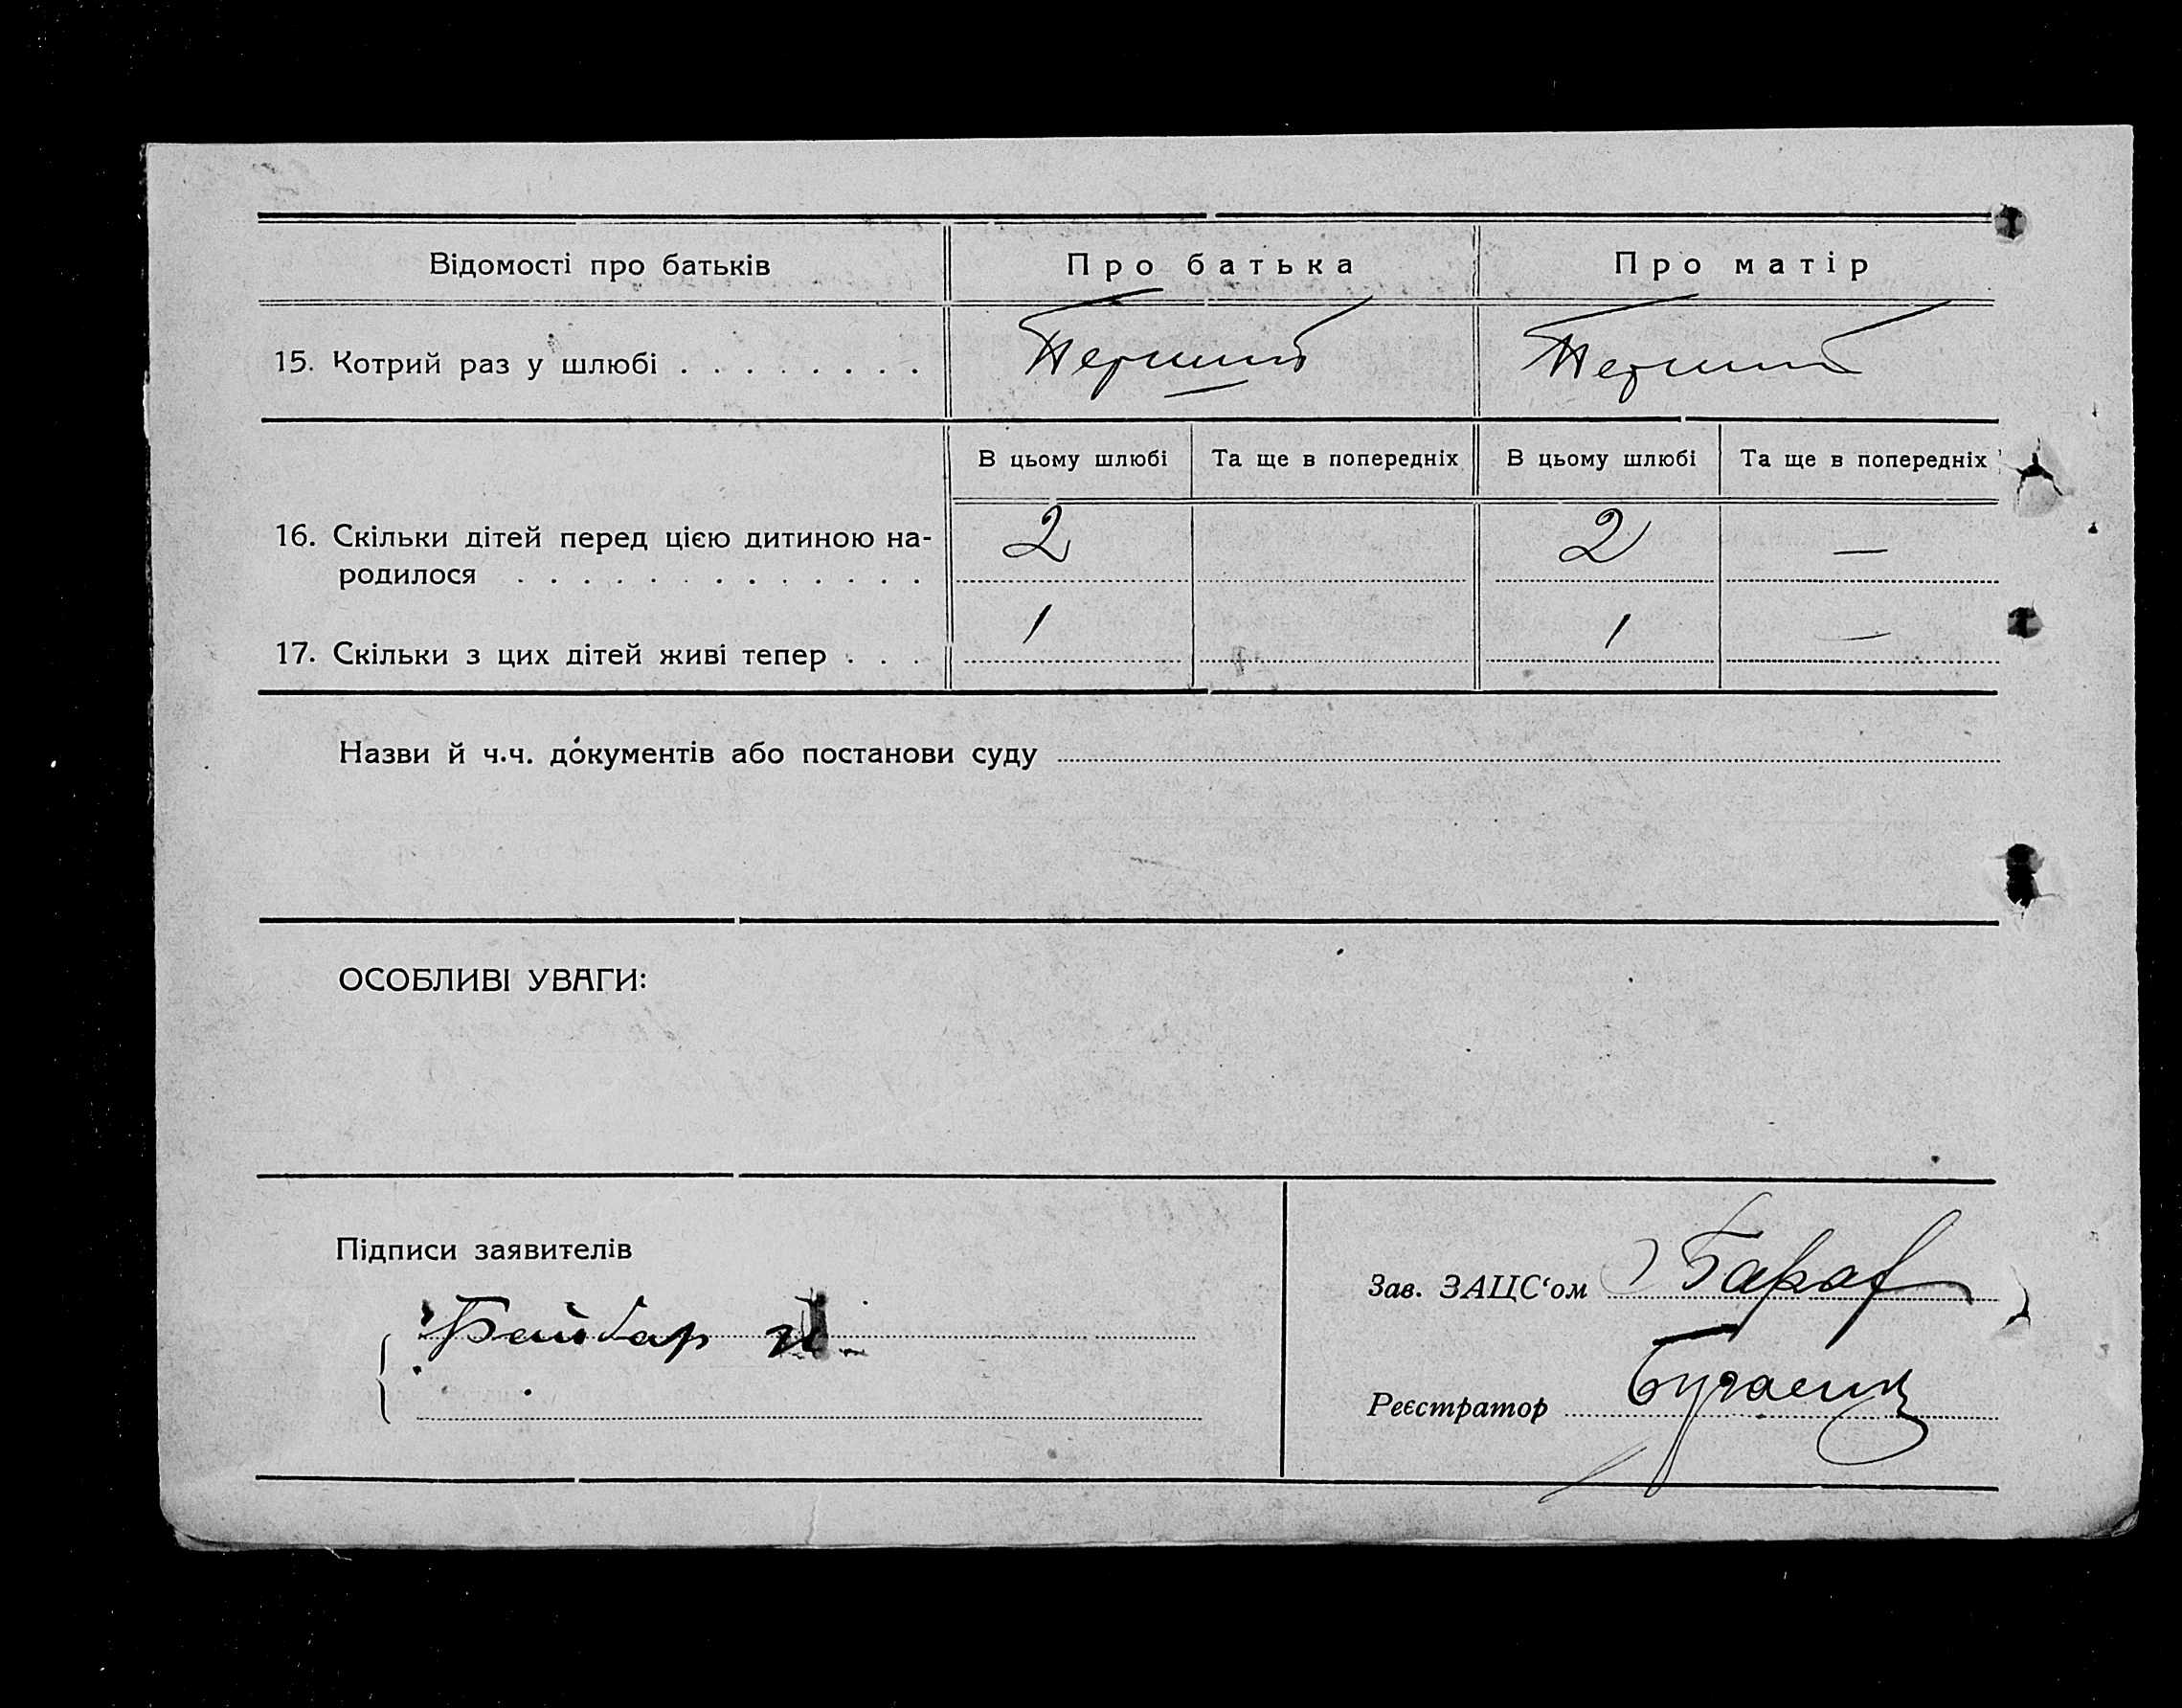 Відомості про батьків Про батька Про матір
15. Котрий раз у шлюбі . . . . . . . . Перший Перший
В цьому шлюбі Та ще в попередніх В цьому шлюбі Та ще в попередніх
16. Скільки дітей перед цією дитиною на- 2 2 —
родилося . . . . . . . . . . . . .
17. Скільки з цих дітей живі тепер . . . 1 1 —
Назви й ч.ч. документів або постанови суду
ОСОБЛИВІ УВАГИ:
Підписи заявителів
Зав. ЗАЦС‘ом
Байбар
Реєстратор